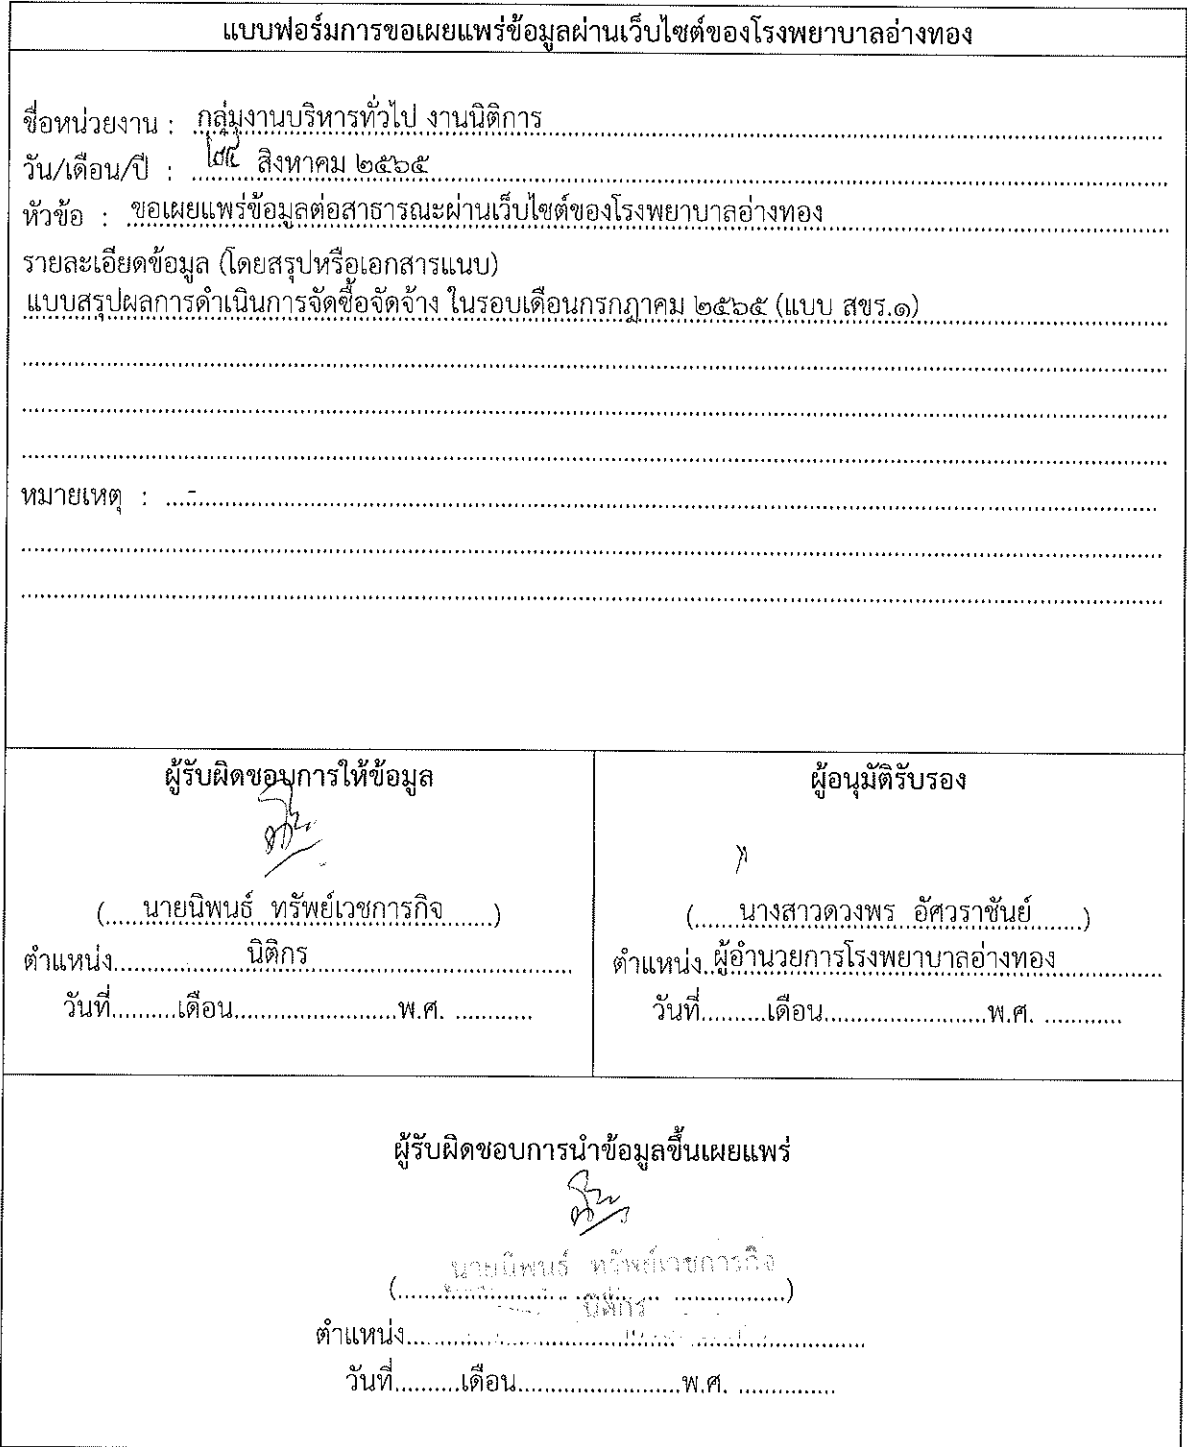 แบบฟอร์มการขอเผยแพร่ข้อมูลผ่านเว็บไซต์ของโรงพยาบาลอ่างทอง
ชื่อหน่วยงาน : กลุ่มงานบริหารทั่วไป งานนิติการ
วัน/เดือน/ปี : สิงหาคม ๒๕๖๕
หัวข้อ : ขอเผยแพร่ข้อมูลต่อสาธารณะผ่านเว็บไซต์ของโรงพยาบาลอ่างทอง
รายละเอียดข้อมูล (โดยสรุปหรือเอกสารแนบ)
แบบสรุปผลการดำเนินการจัดซื้อจัดจ้าง ในรอบเดือนกรกฎาคม ๒๕๖๕ (แบบ สขร.๑)
หมายเหตุ : ...-...
ผู้รับผิดชอบการให้ข้อมูล
(.....นายนิพนธ์ ทรัพย์เวชการกิจ......)
ตำแหน่ง..........นิติกร..........
วันที่..........เดือน.........................พ.ศ. ............
ผู้อนุมัติรับรอง
(......นางสาวดวงพร อัศวราชันย์......)
ตำแหน่ง..ผู้อำนวยการโรงพยาบาลอ่างทอง..........
วันที่..........เดือน.........................พ.ศ. ............
ผู้รับผิดชอบการนำข้อมูลขึ้นเผยแพร่
นายนิพนธ์ ทรัพย์เวชการกิจ
(..............................)
นิติกร
ตำแหน่ง..............................
วันที่..........เดือน.........................พ.ศ. ...............